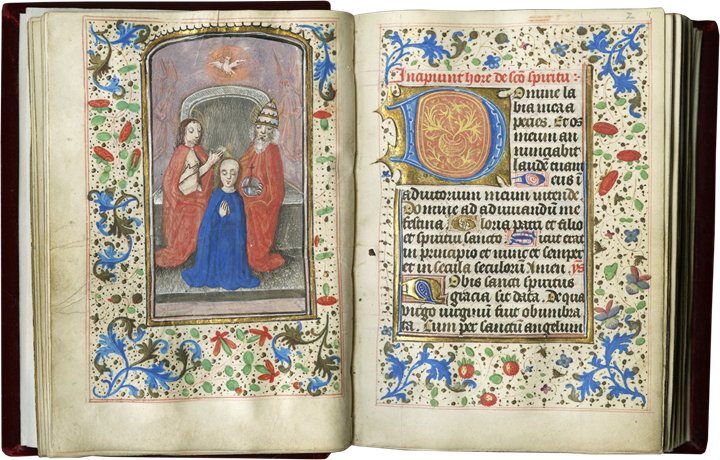 Incipiunt hore de sco spiritu :
Domine la
bia mea a
peries. Et os
meum an
nunciabit
laudē tuam
eus i
adiutorium meum intende
Domine ad adiuvandū me
festina. Gloria patri et filio
et spiritui sancto. Sicut erat
in principio et nunc et semper
et in secula seculorū Amen. ys
Nobis sancti spiritus
gracia sit data. De qua
virgo virginū fuit obumbra
ta. Cum per sanctū angelum